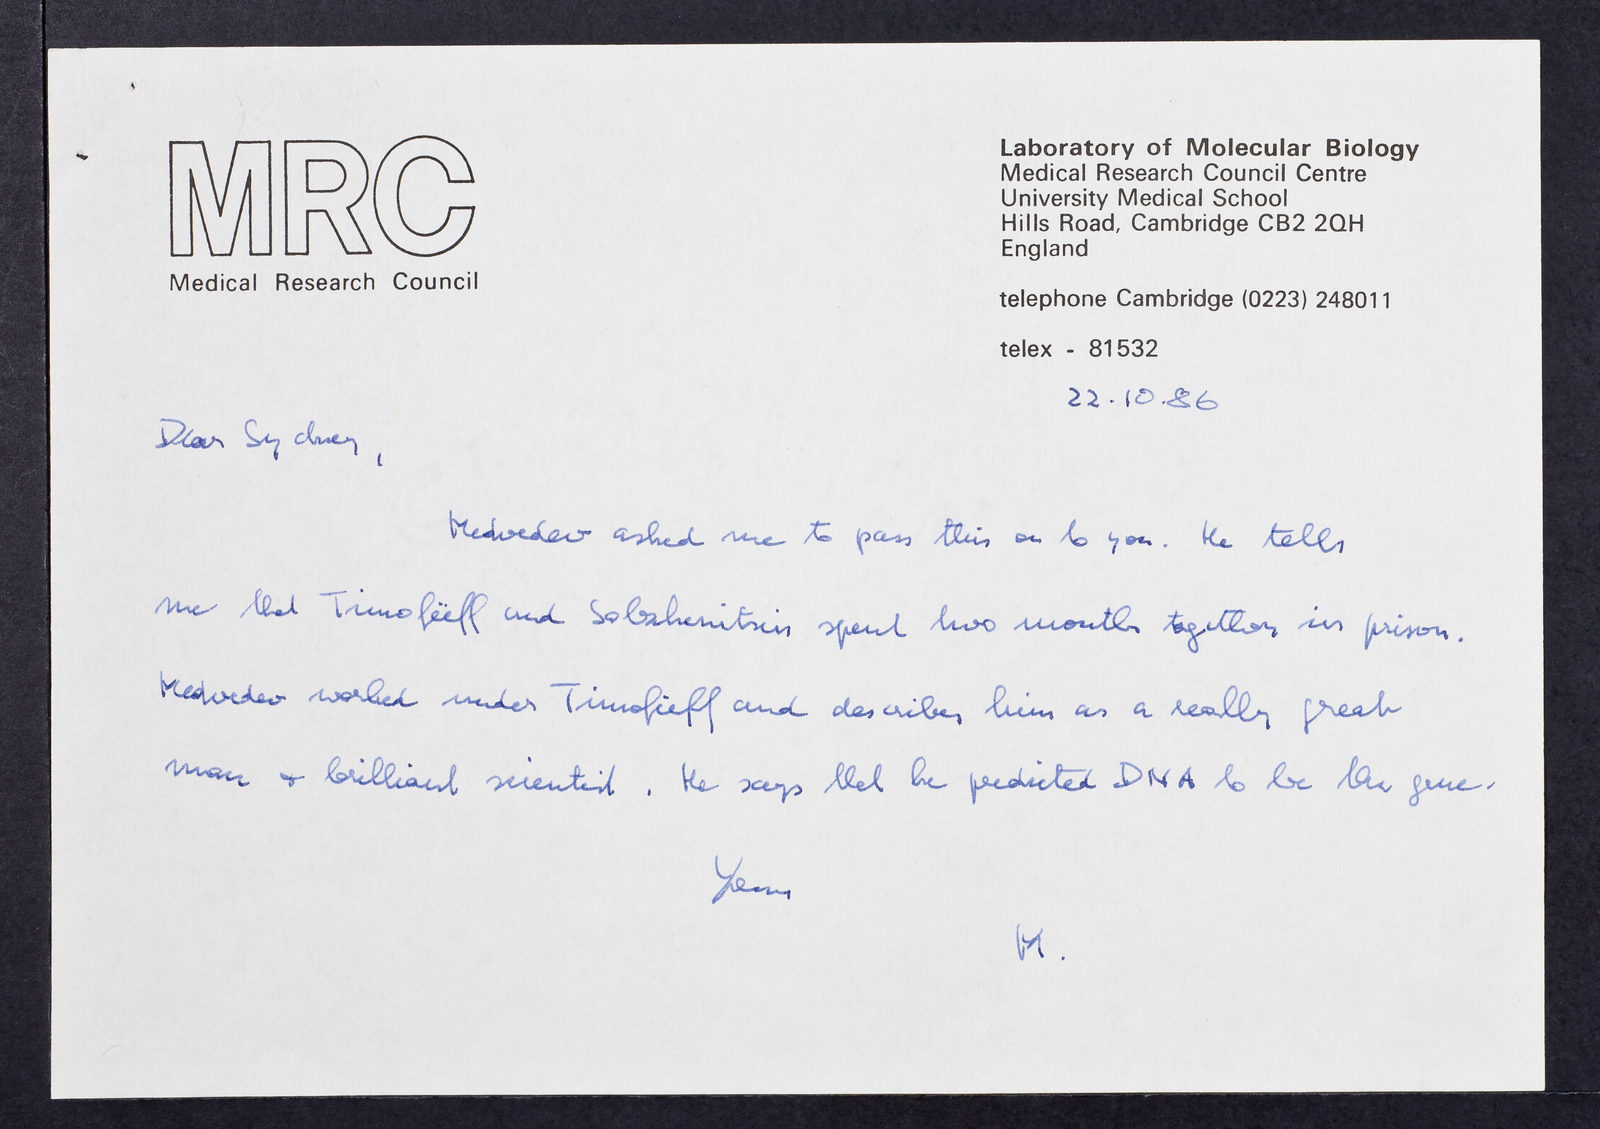 MRC
Medical Research Council
Laboratory of Molecular Biology
Medical Research Council Centre
University Medical School
Hills Road, Cambridge CB2 2QH
England
telephone Cambridge (0223) 248011
telex - 81532
22.10.86
Dear Sydney,
Medvedev asked me to pass this on to you. He tells
me that Timofëeff and Solzhenitsin spent two months together in prison.
Medvedev worked under Timofieff and describes him as a really great
man + brilliant scientist. He says that he predicted DNA to be the gene.
Yours
M.